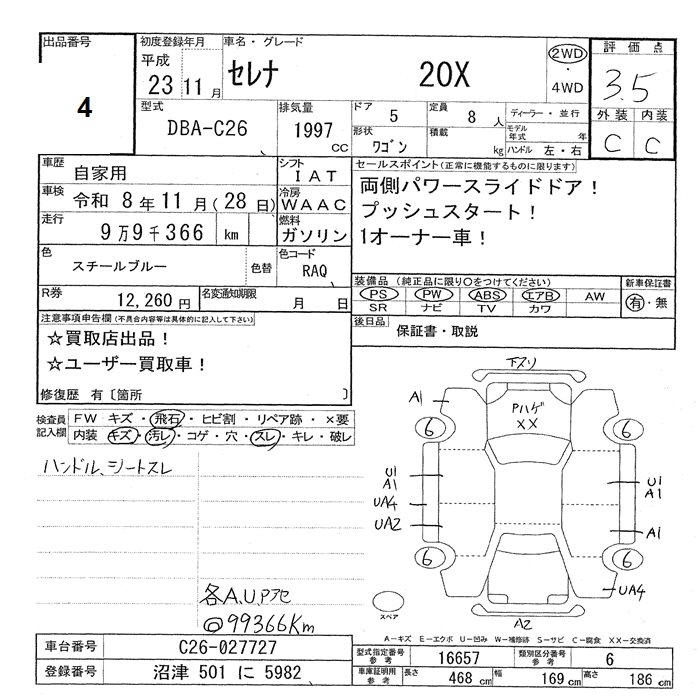 出品番号 初度登録年月 車名・グレード 評価点
平成 23 11月 セレナ 20X 2WD・4WD 3.5
4
型式 排気量 ドア 定員 ディーラー・並行 外装 内装
DBA-C26 1997 CC 5 8人 モデル年式 年 C C
形状 ワゴン 積載 kg ハンドル 左・右
車歴 自家用 シフト IAT セールスポイント(正常に機能するものに限ります)
車検 令和 8年11月(28日) 冷房 WAAC 両側パワースライドドア!
走行 9万9千366 km 燃料 ガソリン プッシュスタート!
1オーナー車!
色 スチールブルー 色替 色コード RAQ
装備品(純正品に限り○をつけてください) 新車保証書
PS PW ABS エアB AW 有・無
SR ナビ TV カワ
R券 12,260円 名変通知期限 月 日
後日品 保証書・取説
注意事項申告欄(不具合内容等は具体的に記入して下さい)
☆買取店出品!
☆ユーザー買取車!
修復歴 有〔箇所 〕
検査員記入欄 FW キズ・飛石・ヒビ割・リペア跡・×要
内装 キズ・汚レ・コゲ・穴・スレ・キレ・破レ
ハンドル、シートスレ
各A、U、Pアセ
@99366Km
下スリ
A1 Pハゲ XX
6 6
U1 A1 U1 A1
UA4
UA2 A1
6 6
UA4
スペア A2
A-キズ E-エクボ U-凹み W-補修跡 S-サビ C-腐食 XX-交換済
車台番号 C26-027727
型式指定番号 参考 16657 類別区分番号 参考 6
登録番号 沼津 501 に 5982
車庫証明用 参考 長さ 468cm 幅 169cm 高さ 186cm